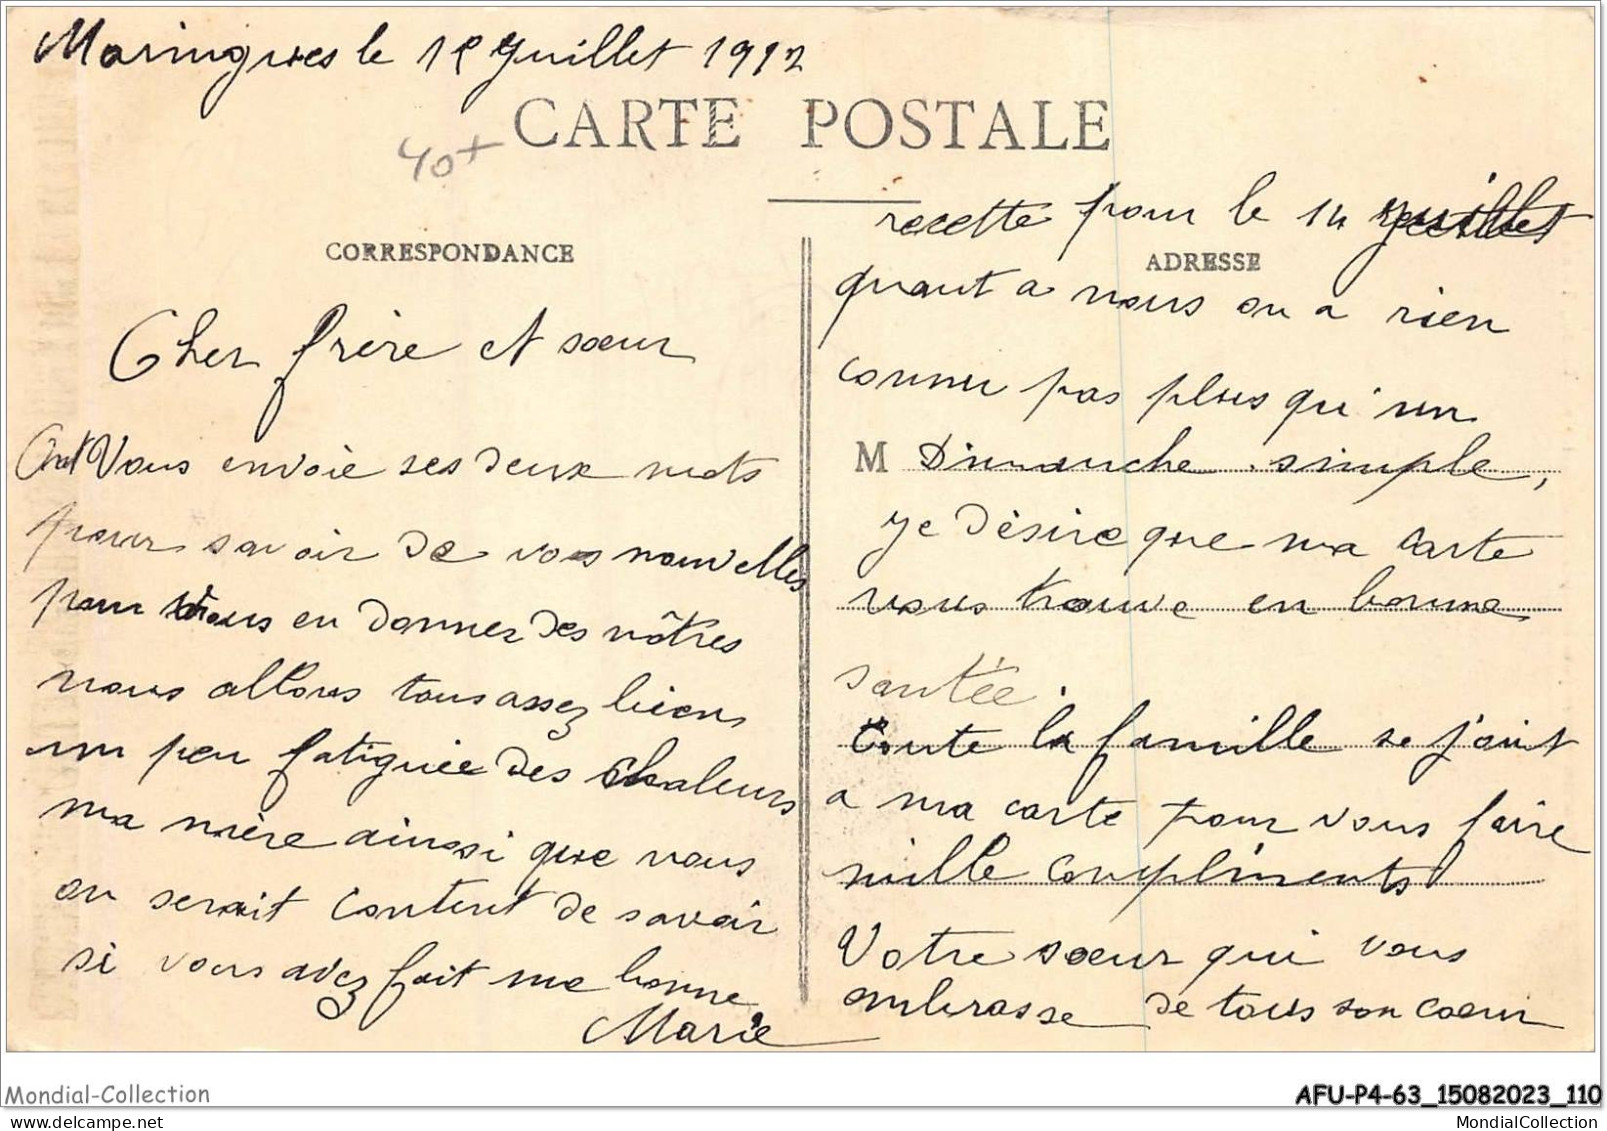 Maringues le 18 Juillet 1912
40+
CARTE POSTALE
CORRESPONDANCE
Cher frère et sœur
Vous envoie ses deux mots
pour savoir de vos nouvelles
pour vous en donner des nôtres
nous allons tous assez bien
un peu fatiguée des chaleurs
ma mère ainsi que vous
on serait content de savoir
si vous avez fait une bonne
Marie
recette pour le 14 Juillet
ADRESSE
quant a nous on a rien
connu pas plus qu'un
M Dimanche simple,
je désire que ma carte
vous trouve en bonne
santée.
toute la famille se joint
a ma carte pour vous faire
mille compliments
Votre sœur qui vous
embrasse de tous son coeur
Mondial-Collection
AFU-P4-63_15082023_110
Mondial-Collection.com
MondialCollection.com